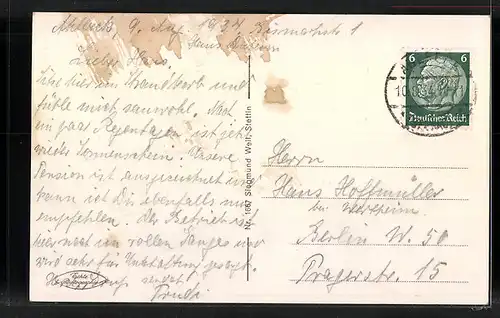 Ahlbeck, 9. Aug. 1934 Bismarckstr. 1
Haus
Lieber Hans.
Sitze hier im Strandkorb und
fühle mich sauwohl. Nach
ein paar Regentagen ist jetzt
wieder Sonnenschein. Unsere
Pension ist ausgezeichnet und
kann ich Dir ebenfalls nur
empfehlen. Der Betrieb ist
hier noch im vollen Gange und
wird sehr für Unterhaltung gesorgt.
Trudi
Echte
Photographie
Nr. 1667 Siegmund Wolf, Stettin
6 6
Deutsches Reich
Herrn
Hans Hoffmüller
bei Wertheim
Berlin W. 50
Pragerstr. 15